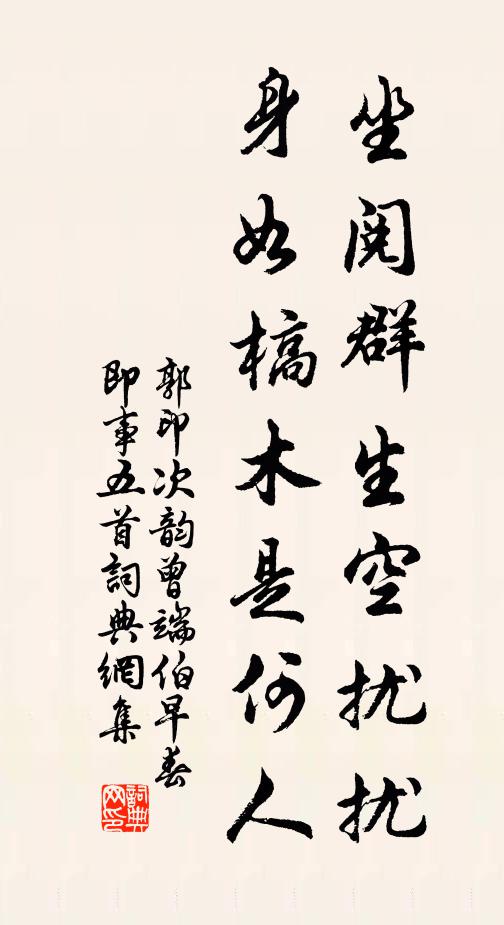 坐阅群生空扰扰
身如槁木是何人
郭印次韵曾端伯早春
即事五首詞典網集
詞典
网印